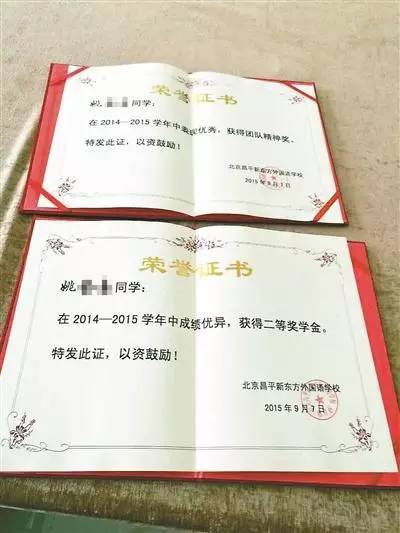 荣誉证书
姚 同学：
在2014—2015学年中表现优秀，获得团队精神奖。
特发此证，以资鼓励！
北京昌平新东方外国语学校
2015年9月7日
荣誉证书
姚 同学：
在2014—2015学年中成绩优异，获得二等奖学金。
特发此证，以资鼓励！
北京昌平新东方外国语学校
2015年9月7日